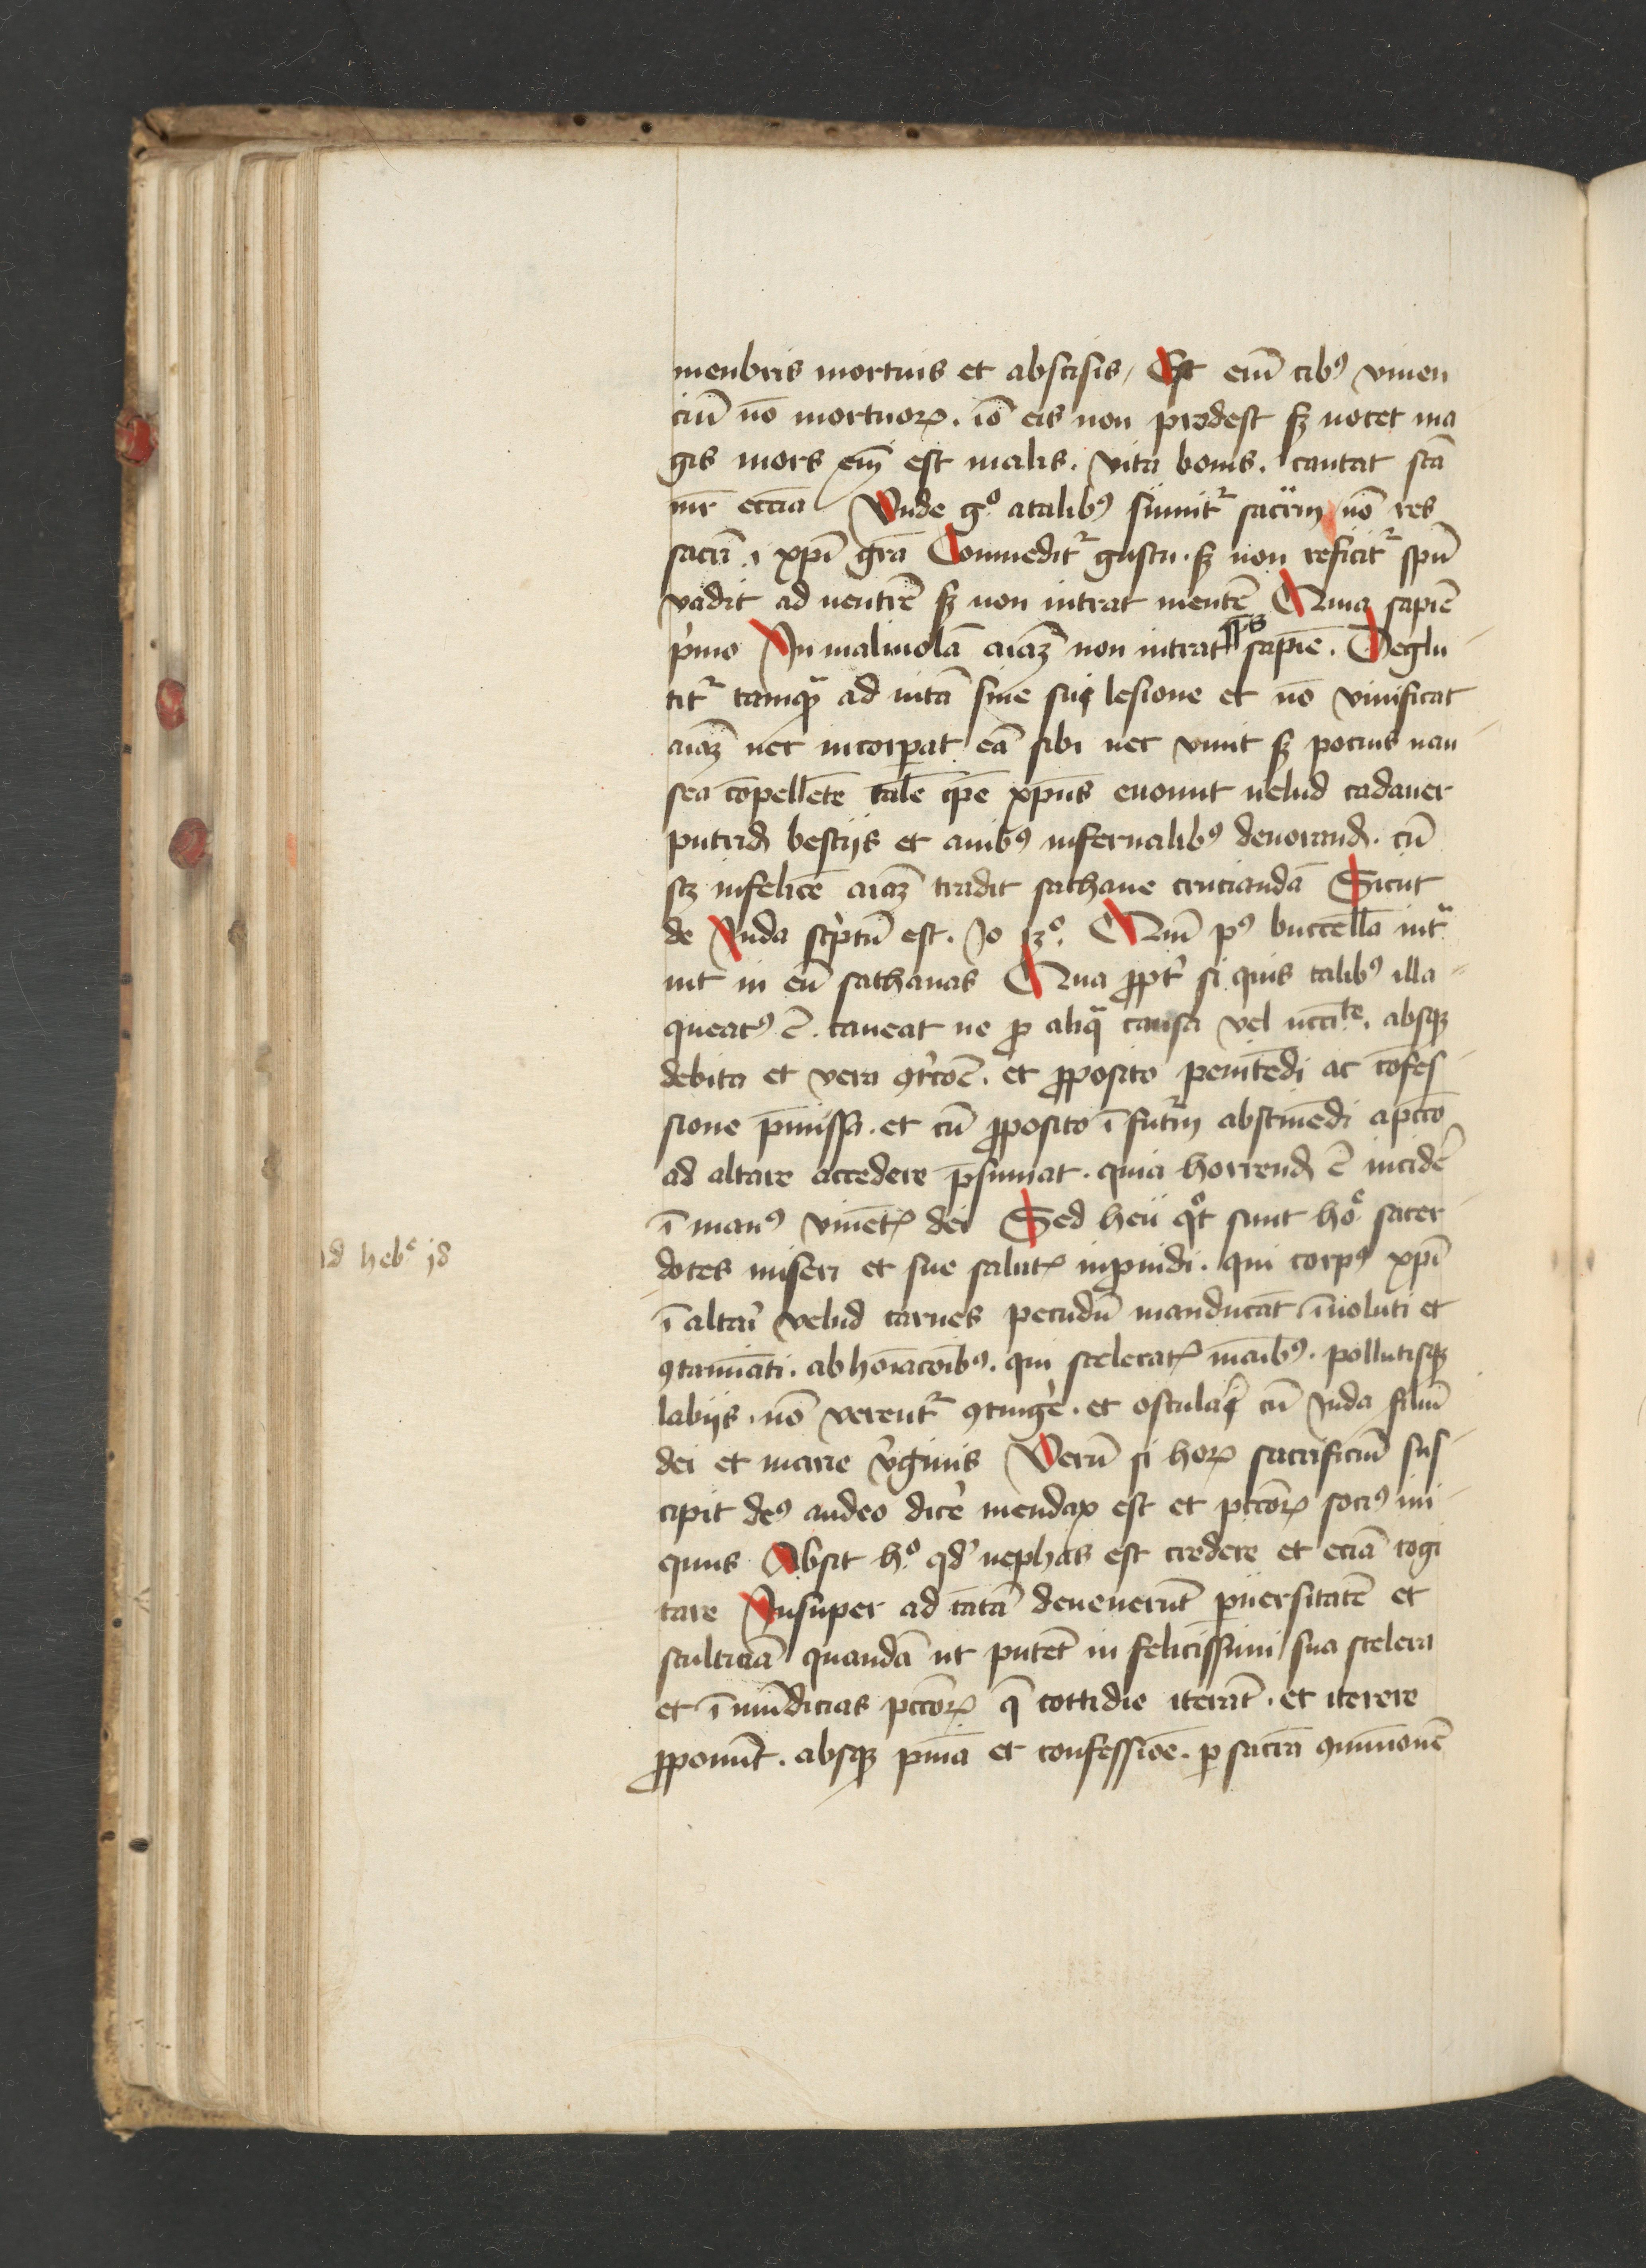 menbris mortuis et abscisis / Est eim̄ cibꝰ viuen
ciū nō mortuoꝝ . iō eis non prodest sꝫ nocet ma
gis mors em̄ est malis . vita bonis . cantat scā
mr̄ eccīa Vnde gͦ atalibꝰ sumitᷣ sacrm̄ nō res
sacrī .i. xp̄i grā Commeditᷣ gustu . sꝫ non reficitᷣ spū
vadit ad uentrē sꝫ non intrat mentē Quia sapiē
pͥmo In maliuolā aiaꝫ non intrat sp̄s sapiē . Deglu
titᷣ tamqᷓ ad uitā sine sui lesione et nō viuificat
aiaꝫ nec incorꝑat eā sibi nec viuit sꝫ pocius nau
sea cōpellēte talē ip̄e xp̄us euomit uelud cadauer
putridꝫ bestijs et auibꝰ infernalibꝰ deuorandꝫ . cū
scꝫ infelicē aiaꝫ tradit sathane cruciandā Sicut
de Juda scͥptū est . Jo 13ͦ . Quī pꝰ buccellā intᷓ
uit in eū sathanas Qua ꝓptͥ si quis talibꝰ illa
queatꝰ ē . caueat ne ꝓ aliqᷓ causa vel nccīte . absqꝫ
debita et vera ꝯtͥcōe . et ꝓposito penitēdi ac cōfes
sione p̄missa . et cū ꝓposito ī futᷣm abstinēdi a pctō
ad altare accedere p̄sumat . quia horrendꝫ ē incidē
ī manꝰ viuētꝭ dei Sed heu qͦt sunt hoͤ sacer
dotes miseri et sue salutꝭ inꝓuidi . qui corpꝰ xp̄i
ī altarͥ velud carnes pecudū manducāt īuoluti et
ꝯtamīati . abhoīacōibꝰ . qui sceleratꝭ maībꝰ . pollutisqꝫ
labijs . nō verentᷣ ꝯtingē . et osculari cū Juda filiū
dei et marie vͥginis Verū si hoꝝ sacrificiū sus
cipit deꝰ audeo dicē mendax est et pctōꝝ sociꝰ ini
quus Absit hͦ qd' nephas est credere et eciā cogi
tare Insuper ad tātā deuenerūt ꝑuersitatē et
stulticiā quandā ut putēt in felicissimi sua scelera
et ī mūdicias pctōꝝ q̄ cottidie iterāt . et iterere
ꝓponūt . absqꝫ pnīa et confessiōe . ꝑ sacrā ꝯmunionē
ad hebͤ 10